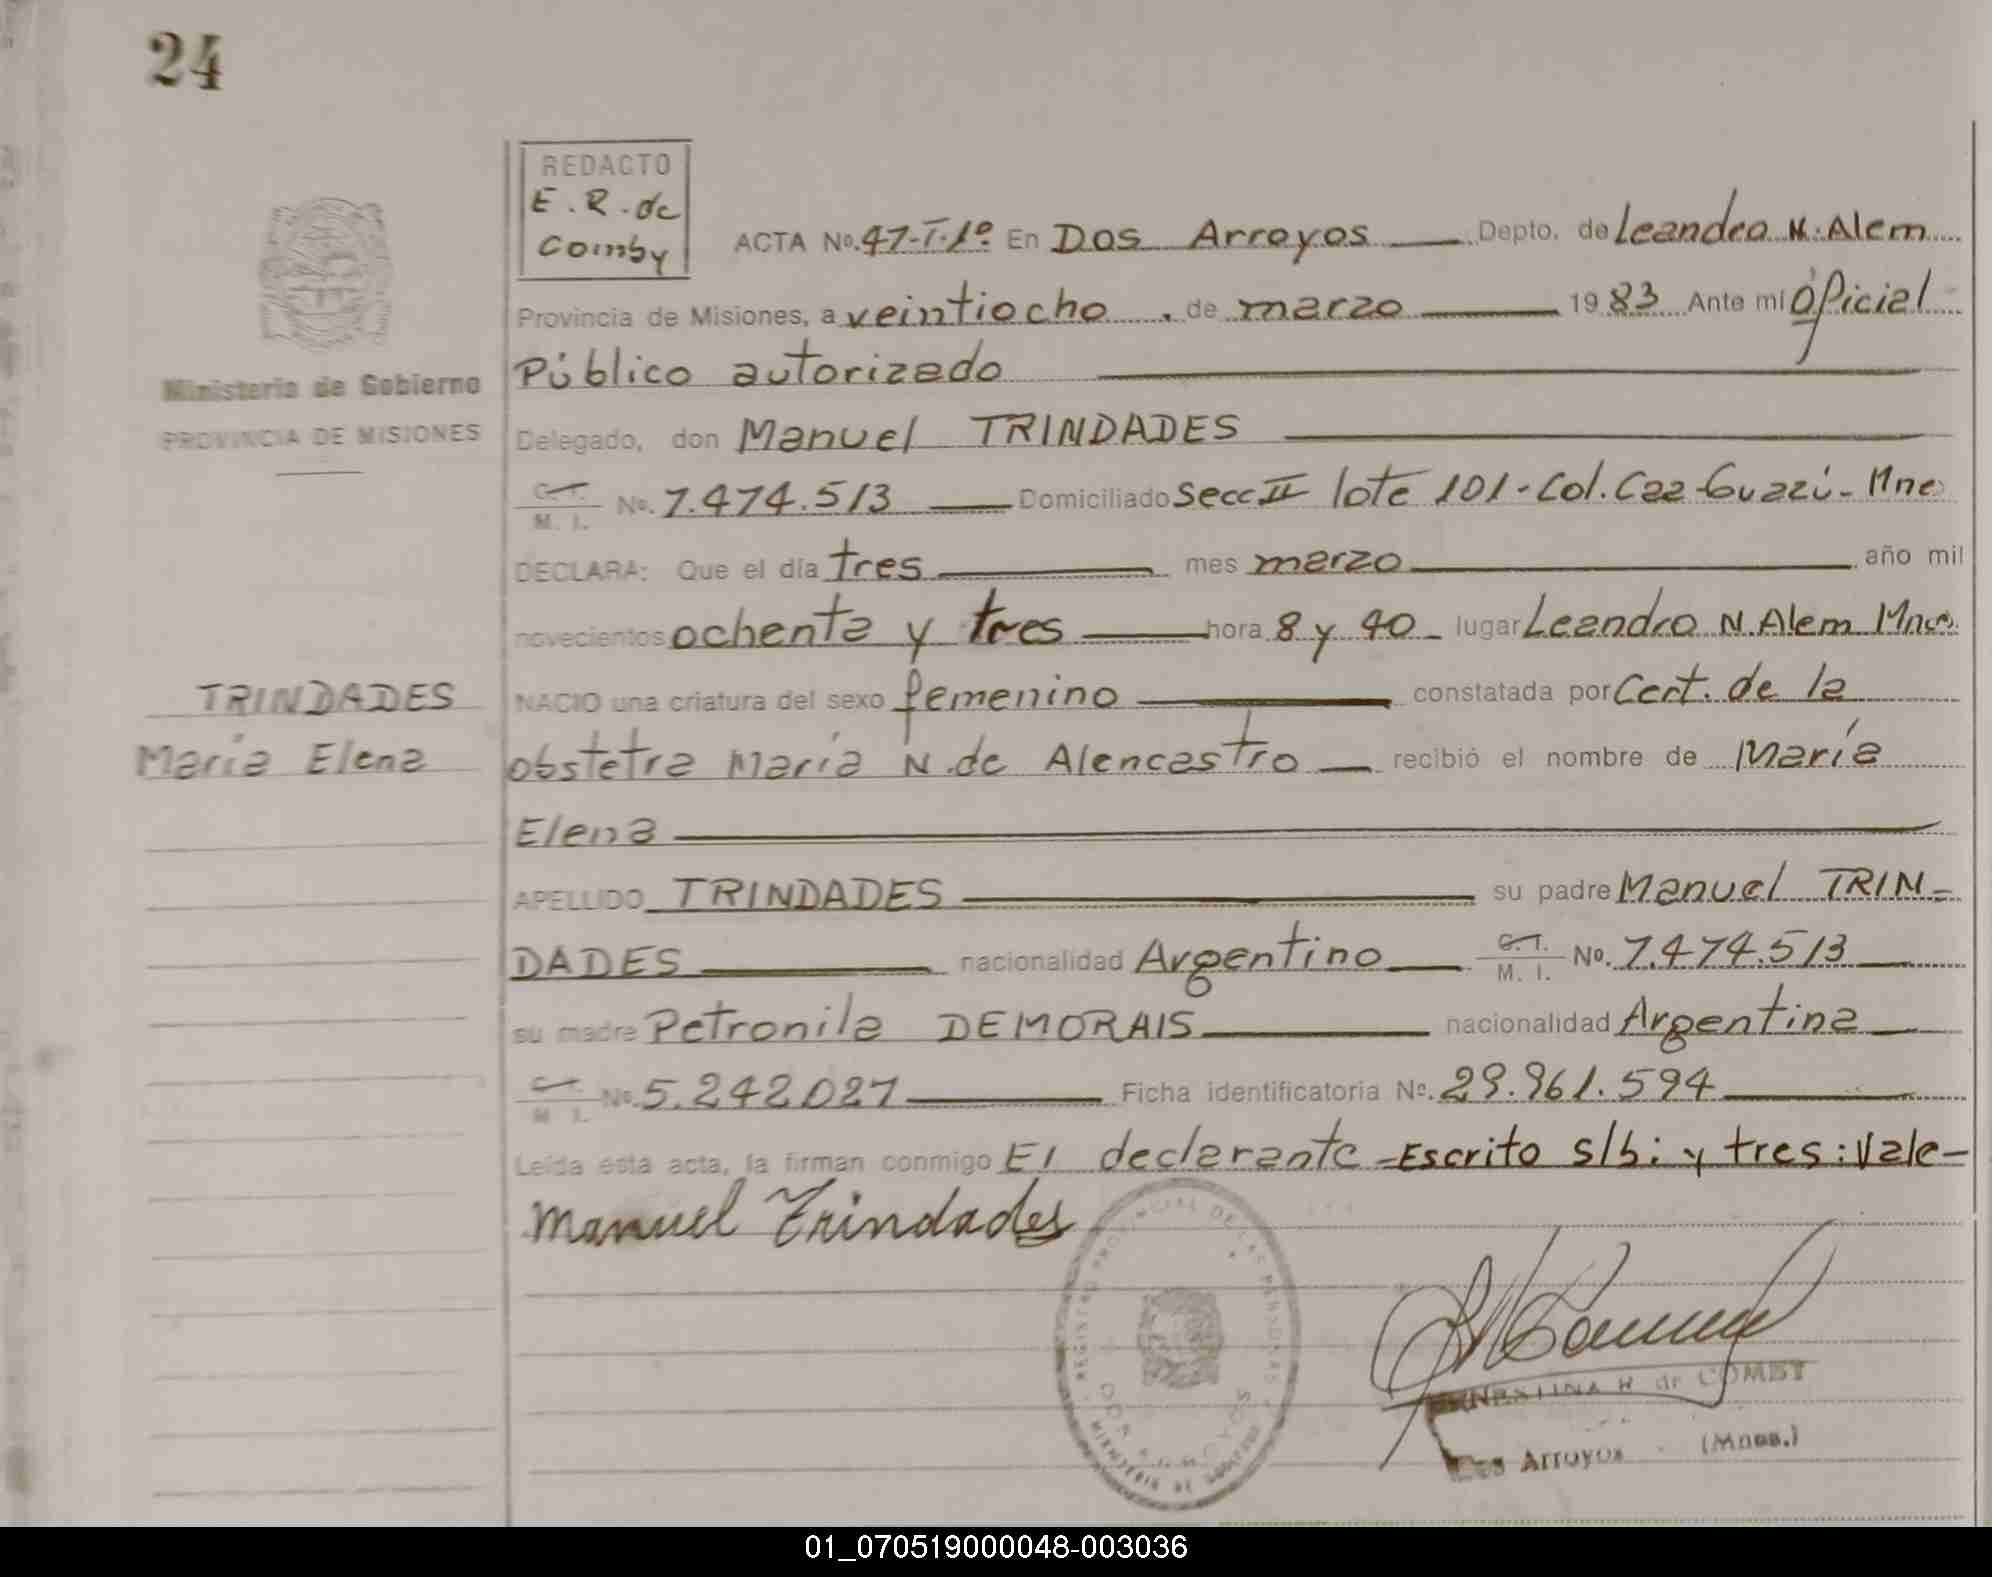 24
REDACTO
E. R. de
Comby
ACTA No. 47-T-1º En Dos Arroyos Depto. de Leandro N. Alem
Provincia de Misiones, a veintiocho, de marzo 1983 Ante mí Oficial
Público autorizado
Ministerio de Gobierno
PROVINCIA DE MISIONES
Delegado, don Manuel TRINDADES
C. I. M. I. No. 7.474.513 Domiciliado Secc II lote 101-Col. Caa-Guazú- Mnes
DECLARA: Que el día tres mes marzo año mil
novecientos ochenta y tres hora 8 y 40 lugar Leandro N. Alem Mnes.
TRINDADES
María Elena
NACIO una criatura del sexo femenino constatada por Cert. de la
obstetra María N. de Alencastro recibió el nombre de María
Elena
APELLIDO TRINDADES su padre Manuel TRIN-
DADES nacionalidad Argentino C. I. M. I. No. 7.474.513
su madre Petronila DEMORAIS nacionalidad Argentina
C. I. M. I. No. 5.242.027 Ficha identificatoria No. 29.961.594
Leída esta acta, la firman conmigo El declarante -Escrito s/b: y tres: Vale-
Manuel Trindades
REGISTRO PROVINCIAL DE LAS PERSONAS
DOS ARROYOS
MINISTERIO DE GOBIERNO
ERNESTINA R. de COMBY
Dos Arroyos (Mnes.)
01_070519000048-003036